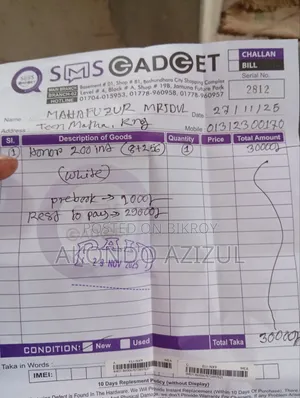 SMS GADGET
CHALLAN
BILL
MAIN BRANCH Basement # 01, Shop # 81, Bashundhara City Shopping Complex
BRANCH-02 Level # 4, Block # A, Shop # 19B, Jamuna Future Park
HOTLINE 01704-015953, 01778-960956, 01778-960957
Serial No.
2812
Name MAHAFUZUR MRIDUL Date 27/11/25
Address Mobile 01312300170
Sl. Description of Goods Quantity Price Total Amount
(1) Honor 200 (8+256) (1) 30000/-
(White)
prebook → 1000/-
Rest to pay → 29000/-
POSTED ON BIKROY
AKONDO AZIZUL
NOV 2025
CONDITION: New Used Total Taka 30000/-
Taka in Words
IMEI:
10 Days Replacement Policy (without Display)